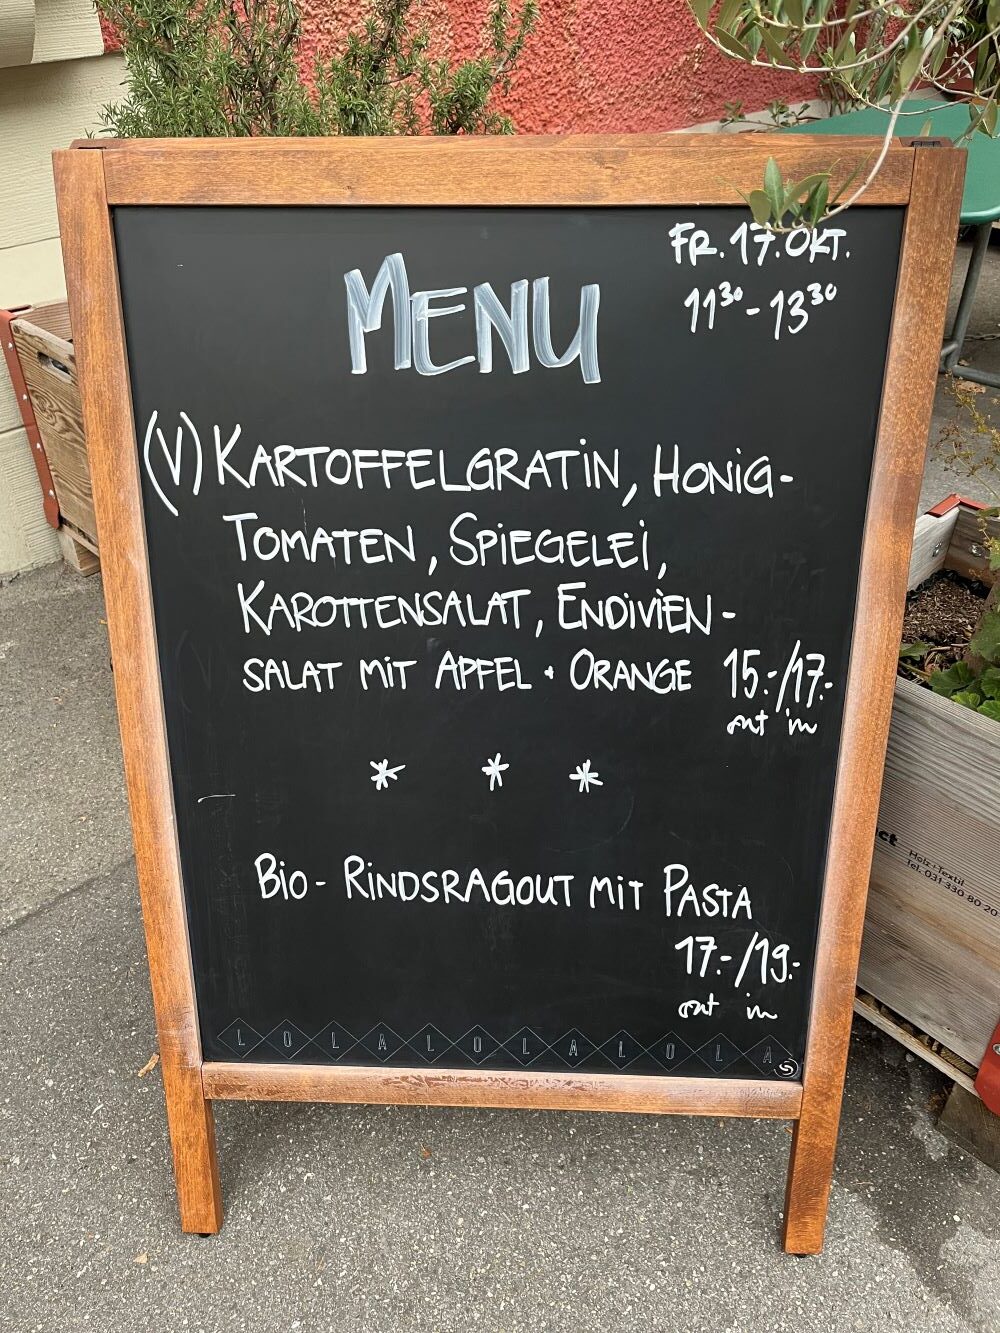 FR. 17. OKT.
11³⁰ - 13³⁰
MENU
(V) KARTOFFELGRATIN, HONIG-
TOMATEN, SPIEGELEI,
KAROTTENSALAT, ENDIVIEN-
SALAT MIT APFEL + ORANGE 15.-/17.-
out in
* * *
BIO - RINDSRAGOUT MIT PASTA
17.-/19.-
out in
L O L A L O L A L O L A
ct
Holz+Textil
Tel. 031 330 80 20